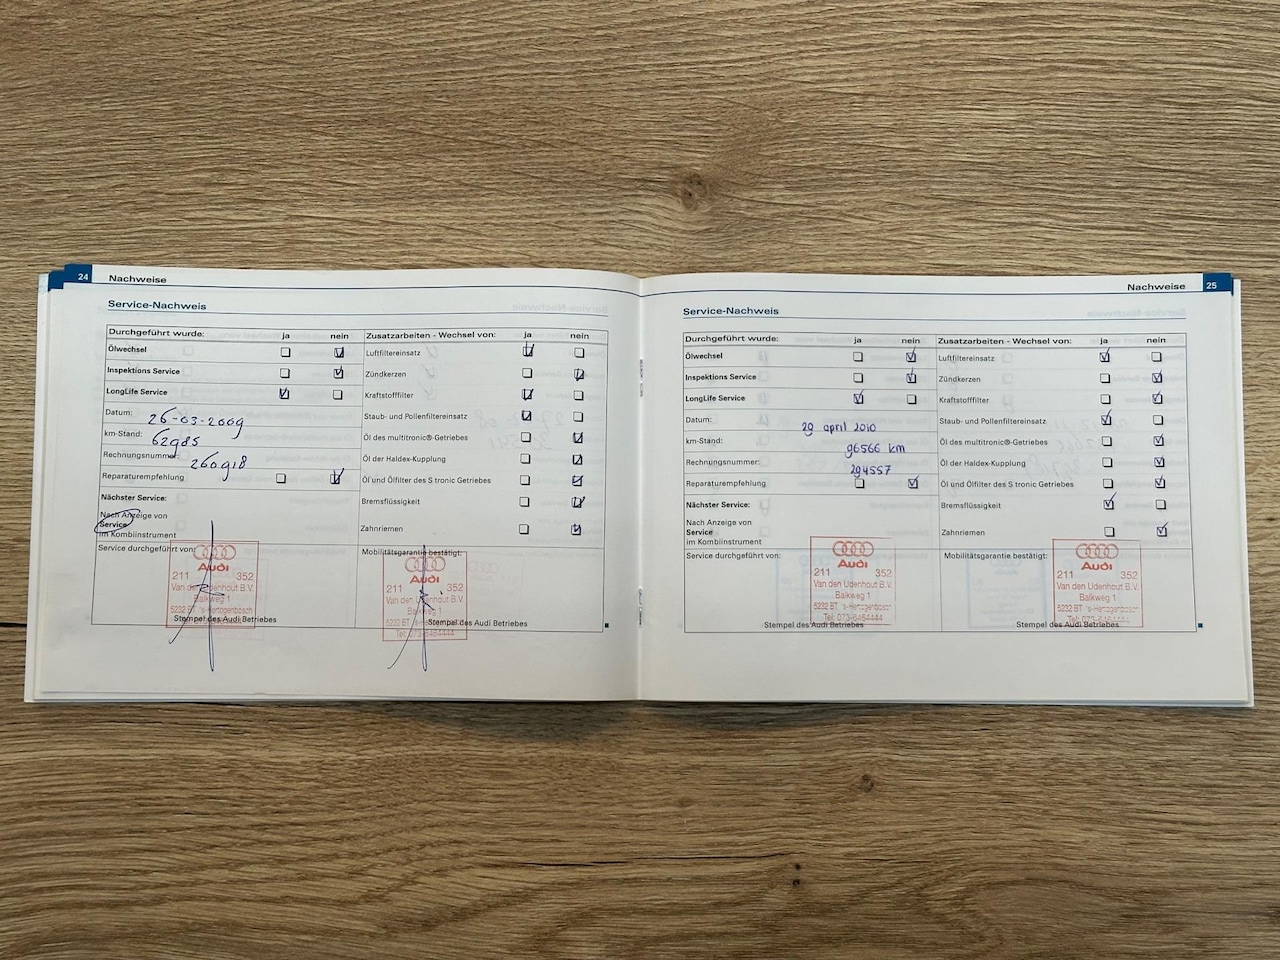 24 Nachweise
Service-Nachweis
Durchgeführt wurde: ja nein
Ölwechsel
Inspektions Service
LongLife Service
Datum: 26-03-2009
km-Stand: 62985
Rechnungsnummer: 260918
Reparaturempfehlung
Nächster Service:
Nach Anzeige von
Service
im Kombiinstrument
Service durchgeführt von:
Audi
211 352
Van den Udenhout B.V.
Balkweg 1
5232 BT 's-Hertogenbosch
Stempel des Audi Betriebes
Zusatzarbeiten - Wechsel von: ja nein
Luftfiltereinsatz
Zündkerzen
Kraftstofffilter
Staub- und Pollenfiltereinsatz
Öl des multitronic®-Getriebes
Öl der Haldex-Kupplung
Öl und Ölfilter des S tronic Getriebes
Bremsflüssigkeit
Zahnriemen
Mobilitätsgarantie bestätigt:
Audi
211 352
Van den Udenhout B.V.
Balkweg 1
5232 BT 's-Hertogenbosch
Tel: 073-6454444
Stempel des Audi Betriebes
Nachweise 25
Service-Nachweis
Durchgeführt wurde: ja nein
Ölwechsel
Inspektions Service
LongLife Service
Datum: 29 april 2010
km-Stand: 96566 km
Rechnungsnummer: 294557
Reparaturempfehlung
Nächster Service:
Nach Anzeige von
Service
im Kombiinstrument
Service durchgeführt von:
Audi
211 352
Van den Udenhout B.V.
Balkweg 1
5232 BT 's-Hertogenbosch
Tel: 073-6454444
Stempel des Audi Betriebes
Zusatzarbeiten - Wechsel von: ja nein
Luftfiltereinsatz
Zündkerzen
Kraftstofffilter
Staub- und Pollenfiltereinsatz
Öl des multitronic®-Getriebes
Öl der Haldex-Kupplung
Öl und Ölfilter des S tronic Getriebes
Bremsflüssigkeit
Zahnriemen
Mobilitätsgarantie bestätigt:
Audi
211 352
Van den Udenhout B.V.
Balkweg 1
5232 BT 's-Hertogenbosch
Tel: 073-6454444
Stempel des Audi Betriebes